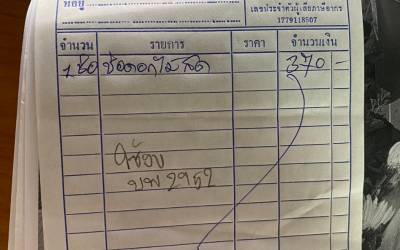 ที่อยู่
เลขประจำตัวผู้เสียภาษีอากร
1779118507
จำนวน รายการ ราคา จำนวนเงิน
1 ช่อ ช่อดอกไม้สด 370 -
บพ 2952